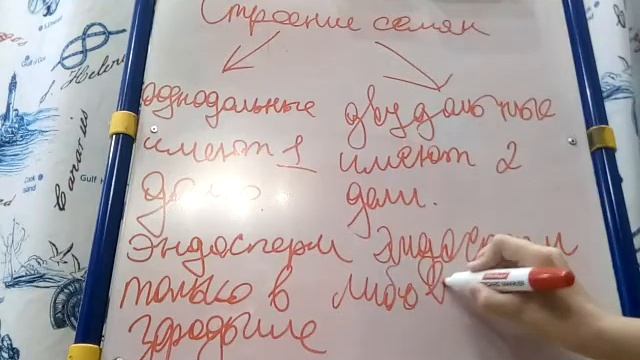 Строение семян
однодольные
имеют 1
двудольные
имеют 2
доли.
Эндосперм
только в
зародыше
эндосперм
либо в
St. Helena
Canarus
Gulf